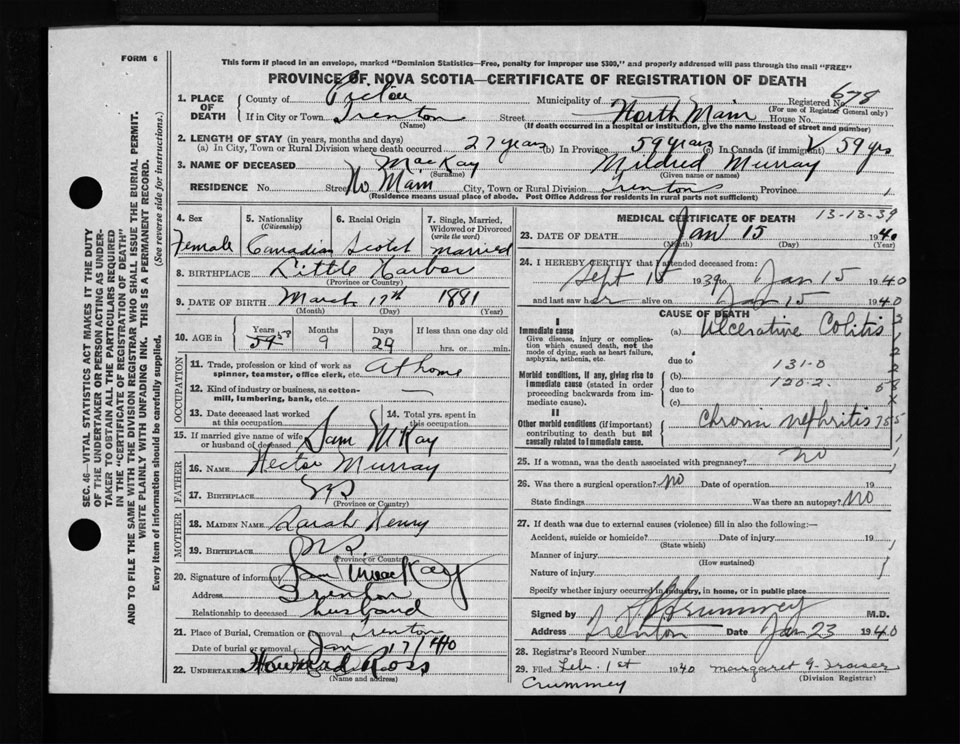 FORM 6
This form if placed in an envelope, marked "Dominion Statistics—Free, penalty for improper use $300," and properly addressed will pass through the mail "FREE"
PROVINCE OF NOVA SCOTIA—CERTIFICATE OF REGISTRATION OF DEATH
SEC. 46—VITAL STATISTICS ACT MAKES IT THE DUTY
OF THE UNDERTAKER OR PERSON ACTING AS UNDER-
TAKER TO OBTAIN ALL THE PARTICULARS REQUIRED
IN THE "CERTIFICATE OF REGISTRATION OF DEATH"
AND TO FILE THE SAME WITH THE DIVISION REGISTRAR WHO SHALL ISSUE THE BURIAL PERMIT.
WRITE PLAINLY WITH UNFADING INK. THIS IS A PERMANENT RECORD.
Every item of information should be carefully supplied. (See reverse side for instructions.)
1. PLACE OF DEATH County of Pictou Municipality of Registered No. 678
(For use of Registrar General only)
If in City or Town Trenton Street North Main House No.
(Name) (If death occurred in a hospital or institution, give the name instead of street and number)
2. LENGTH OF STAY (in years, months and days)
(a) In City, Town or Rural Division where death occurred 27 years (b) In Province 59 years (c) In Canada (if immigrant) 59 yrs
3. NAME OF DECEASED MacKay Mildred Murray
(Surname) (Given name or names)
RESIDENCE No. Street No Main City, Town or Rural Division Trenton Province
(Residence means usual place of abode. Post Office Address for residents in rural parts not sufficient)
4. Sex Female
5. Nationality (Citizenship) Canadian
6. Racial Origin Scotch
7. Single, Married, Widowed or Divorced (write the word) Married
8. BIRTHPLACE Little Harbor
(Province or Country)
9. DATE OF BIRTH March 17th 1881
(Month) (Day) (Year)
10. AGE in Years 59 58 Months 9 Days 29 If less than one day old hrs. or min.
OCCUPATION
11. Trade, profession or kind of work as spinner, teamster, office clerk, etc. At home
12. Kind of industry or business, as cotton-mill, lumbering, bank, etc.
13. Date deceased last worked at this occupation
14. Total yrs. spent in this occupation
15. If married give name of wife or husband of deceased Sam McKay
FATHER
16. Name Hector Murray
17. Birthplace NS
(Province or Country)
MOTHER
18. Maiden Name Sarah Henry
19. Birthplace NS
(Province or Country)
20. Signature of informant Sam MacKay
Address Trenton
Relationship to deceased husband
21. Place of Burial, Cremation or Removal Trenton
Date of burial or removal Jan 17/40
22. Undertaker Howard Ross
(Name and address)
MEDICAL CERTIFICATE OF DEATH 13-13-39
23. DATE OF DEATH Jan 15 1940
(Month) (Day) (Year)
24. I HEREBY CERTIFY that I attended deceased from:
Sept 15 1939 to Jan 15 1940
and last saw her alive on Jan 15 1940
CAUSE OF DEATH
I
Immediate cause (a) Ulcerative Colitis
Give disease, injury or complication which caused death, not the mode of dying, such as heart failure, asphyxia, asthenia, etc.
due to 131-0
Morbid conditions, if any, giving rise to immediate cause (stated in order proceeding backwards from immediate cause). (b) 120-2
due to
(c)
II
Other morbid conditions (if important) contributing to death but not causally related to immediate cause. Chronic Nephritis
25. If a woman, was the death associated with pregnancy? no
26. Was there a surgical operation? no Date of operation 19
State findings Was there an autopsy? no
27. If death was due to external causes (violence) fill in also the following:—
Accident, suicide or homicide? Date of injury 19
(State which)
Manner of injury
(How sustained)
Nature of injury
Specify whether injury occurred in industry, in home, or in public place
Signed by Crummey M.D.
Address Trenton Date Jan 23 1940
28. Registrar's Record Number
29. Filed Feb. 1st 1940 Margaret G. Fraser
(Division Registrar)
Crummey